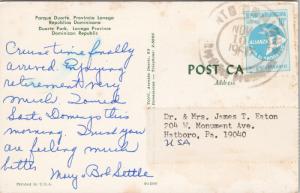 Parque Duarte, Provincia Lavega
República Dominicana
Duarte Park, Lavega Province
Dominican Republic
Cruise time finally
arrived. Enjoying
retirement very
much. Toured
Santo Domingo this
morning. Trust you
are feeling much
better.
Mary & Bob Settle
Printed in U.S.A.
POST CA
Address
ALIANZA
Dr. & Mrs. James T. Eaton
204 W. Monument Ave.
Hatboro, Pa. 19040
USA